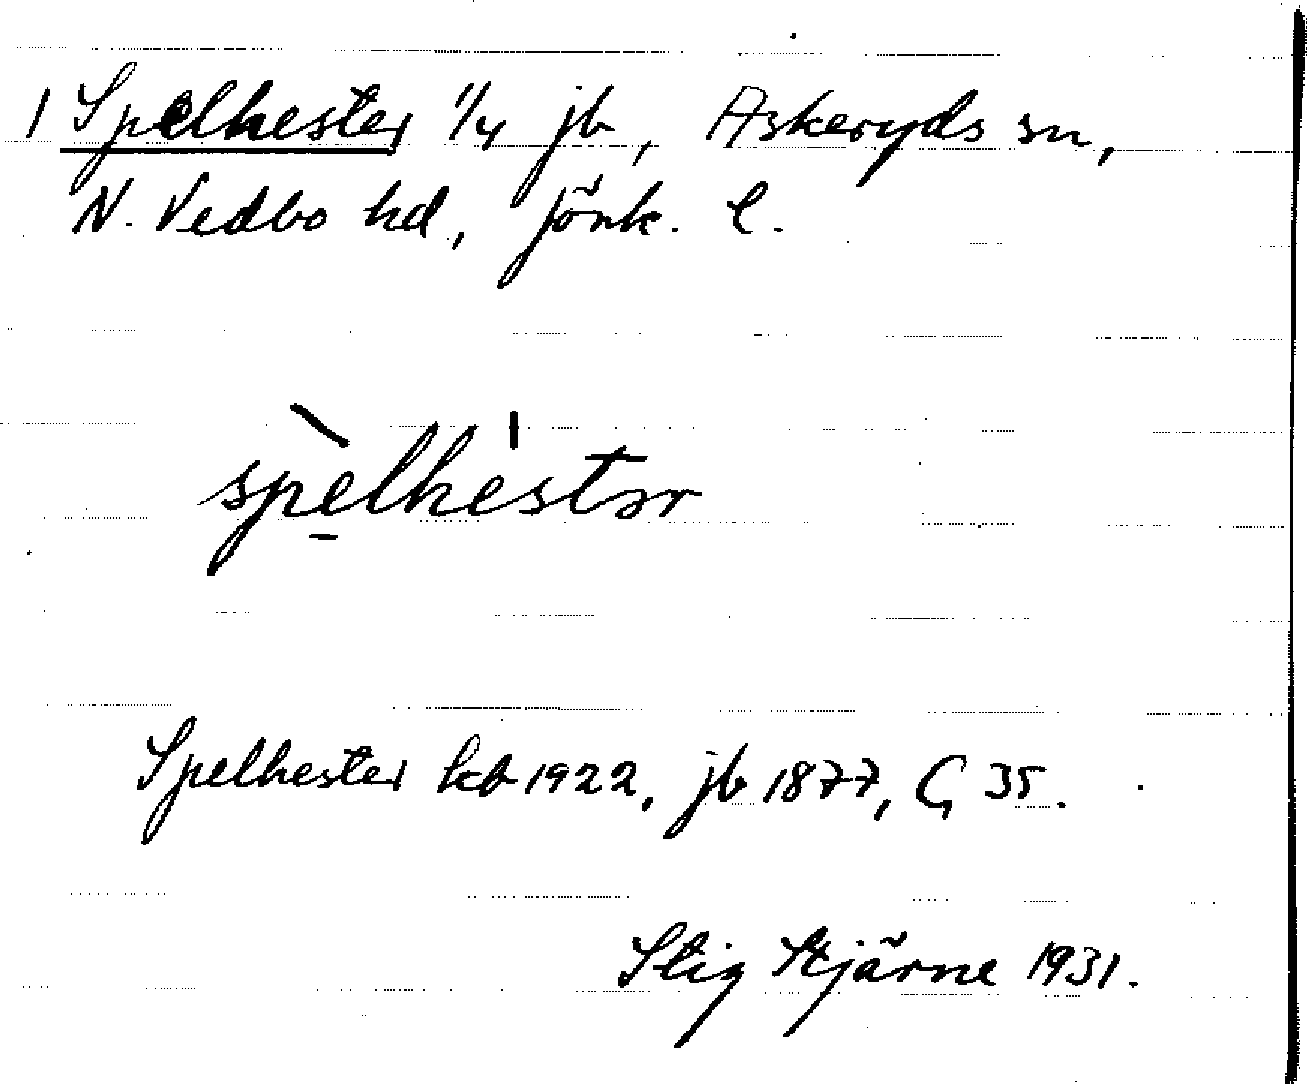 1 Spelhester 1/4 jb, Askeryds sn,
N. Vedbo hd, Jönk. l.
spèlhéstər
Spelhester kb 1922, jb 1877, G 35.
Stig Stjärne 1931.